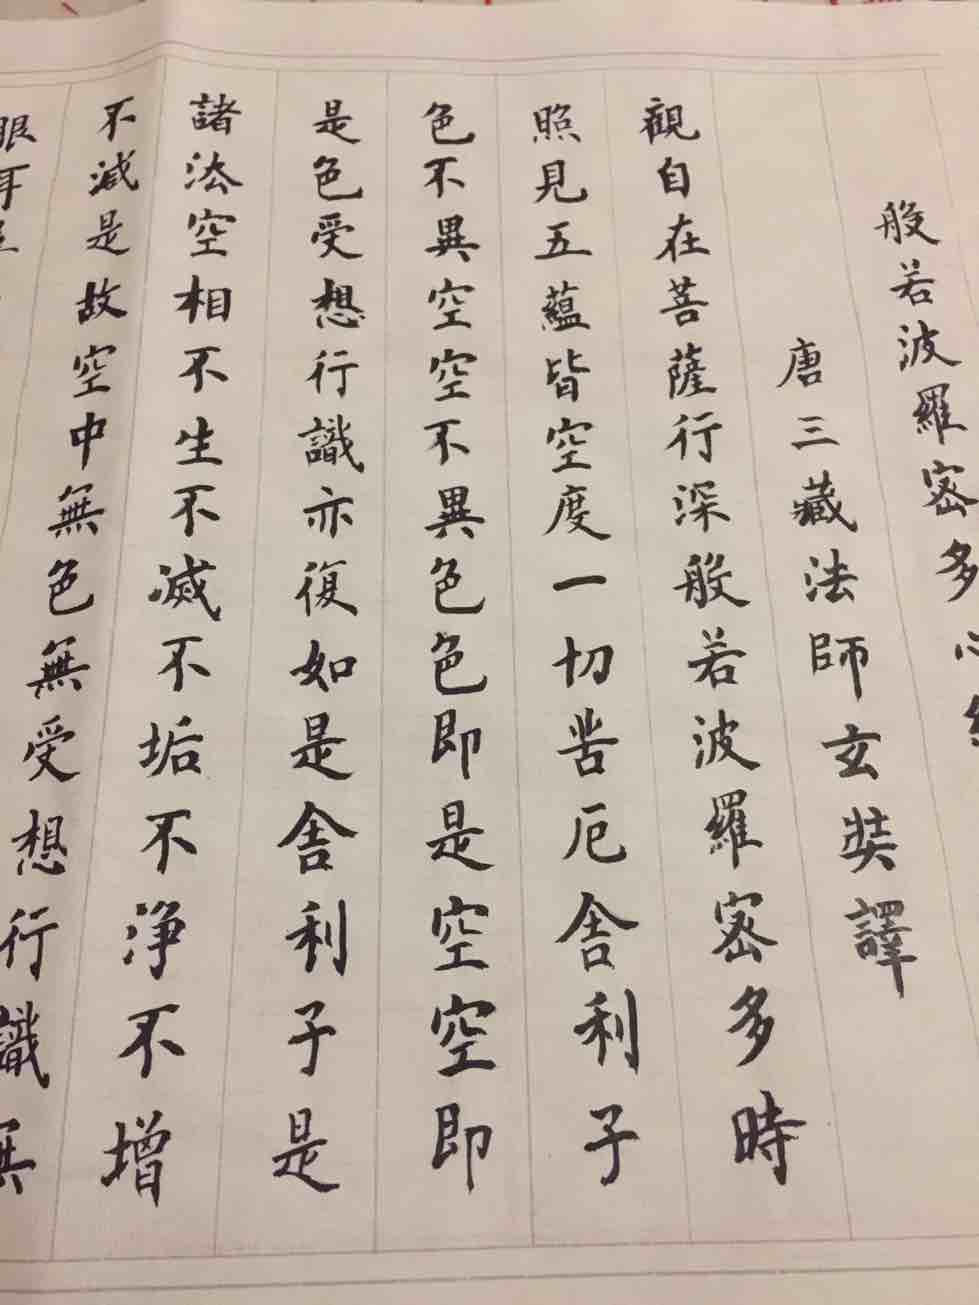 般若波羅密多心經
唐三藏法師玄奘譯
觀自在菩薩行深般若波羅密多時
照見五蘊皆空度一切苦厄舍利子
色不異空空不異色色即是空空即
是色受想行識亦復如是舍利子是
諸法空相不生不滅不垢不净不增
不減是故空中無色無受想行識無
眼耳